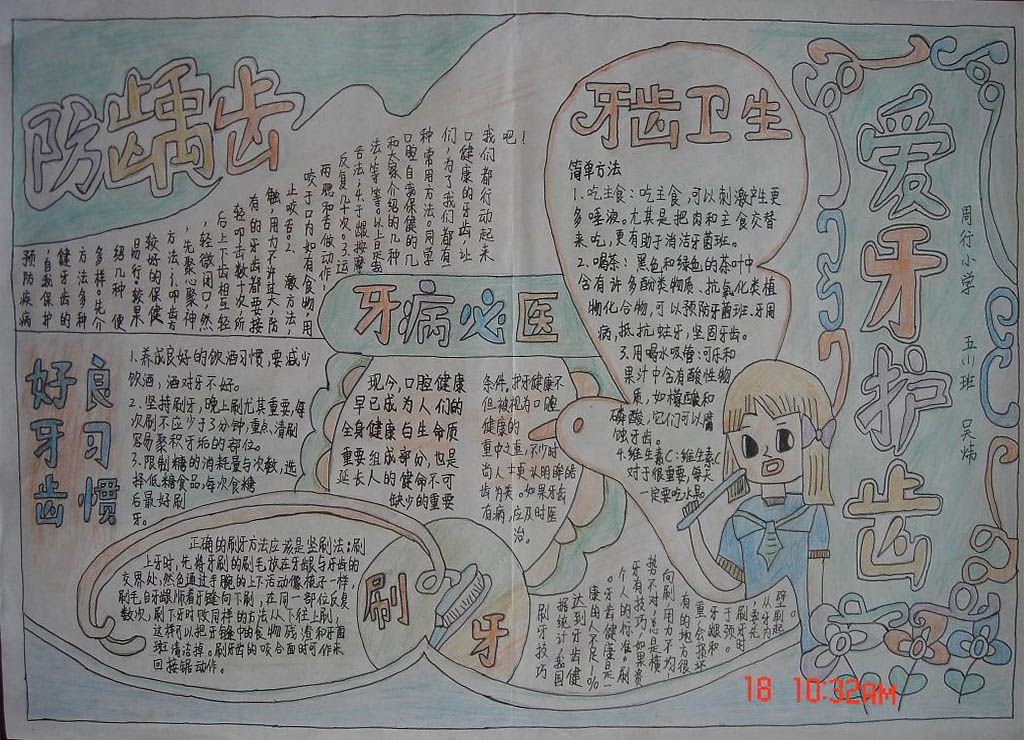 防龋齿
我们都行动起来
口健康的牙齿,让
们,为了我们都有一
种常用方法。同学
口腔自我保健的几
和大家介绍的几种
法,等等。以上是我
舌法:
反复几十次。3.运
两腮和舌做动作,
咬于口内如有食物,用
止咬舌。2.
触,用力不许过大,防
有的牙齿都要接
轻叩击数十次,所
后上下齿相互轻
,轻微闭口,然
,先聚心聚神
方法:1.叩齿方
较好的保健
易行,效果
绍几种
多样。先介
方法多种
健牙齿的
,自我保护
预防疾病
吧!
牙齿卫生
简单方法
1.吃主食:吃主食,可以刺激产生更
多唾液。尤其是把肉和主食交替
来吃,更有助于清洁牙菌斑。
2.喝茶:黑色和绿色的茶叶中
含有许多酚类物质、抗氧化类植
物化合物,可以预防牙菌斑、牙周
病,抵抗蛀牙,坚固牙齿。
3.用喝水吸管:可乐和
果汁中含有酸性物
质,如檬酸和
磷酸,它们可以腐
蚀牙齿。
4.维生素C:维生素C
对于很重要,每天
一定要吃水果。
爱牙护齿
周行小学
五川班
吴炜
牙病必医
现今,口腔健康
早已成为人们的
全身健康白生命质
重要组成部分,也是
延长人的健命不可
缺少的重要
条件,护牙健康不
但被视为口腔
健康的
重中之重,不少时
齿为美。如果牙齿
有病,应及时医
治。
良习惯
好牙齿
1.养成良好的饮酒习惯,要减少
饮酒,酒对牙不好。
2.坚持刷牙,晚上刷尤其重要,每
次刷不应少于3分钟,重点清刷
容易聚积牙垢的部位。
3.限制糖的消耗量与次数,选
择低糖食品,每次食糖
后最好刷
牙。
正确的刷牙方法应该是竖刷法:刷
上牙时,先将牙刷的刷毛放在牙龈与牙齿的
交界处,然色通过手腕的上下活动像筷子一样,
刷毛自牙龈顺着牙缝向下刷,在同一部位反复
数次,刷下牙时改同样的方法从下往上刷,
这样可以把牙缝中的食物残渣和牙菌
斑清洁掉。刷牙齿的咬合面时可作来
回接锯动作。
刷牙
竖刷起。
从牙内
刷牙时
牙龈和
重,会损坏
有的地方很
向刷,用力不均,
势不对,总是横
牙有技巧,如果姿
个人的标准。刷
。牙齿健康是一
康的人不足1%
达到牙齿健
据统计,我国
刷牙技巧
18 10:32AM